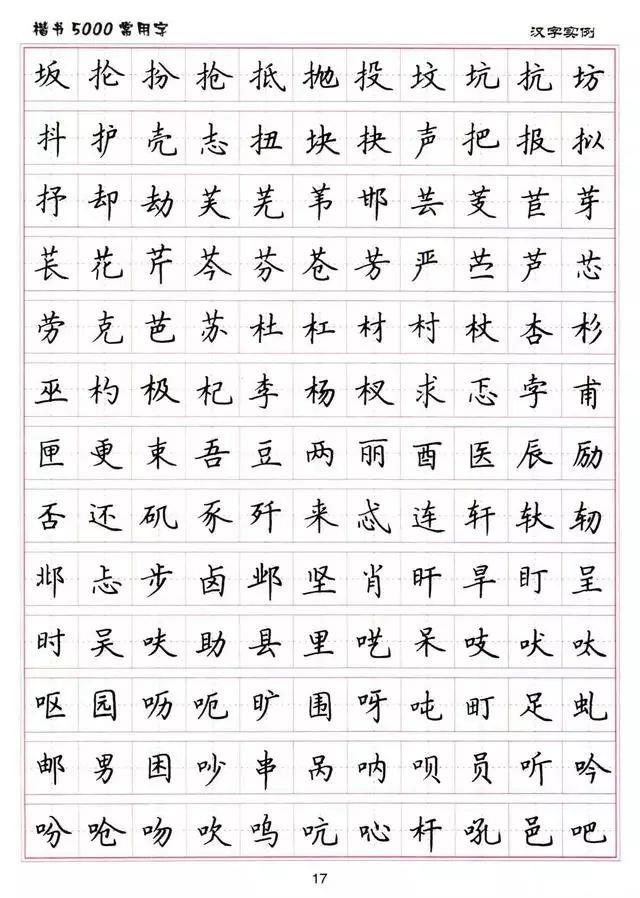 楷书5000常用字 汉字实例
坂 抡 扮 抢 抵 抛 投 坟 坑 抗 坊
抖 护 壳 志 扭 块 抉 声 把 报 拟
抒 却 劫 芙 芜 苇 邯 芸 芰 苣 芽
苌 花 芹 芩 芬 苍 芳 严 苎 芦 芯
劳 克 芭 苏 杜 杠 材 村 杖 杏 杉
巫 杓 极 杞 李 杨 杈 求 忑 孛 甫
匣 更 束 吾 豆 两 丽 酉 医 辰 励
否 还 矶 豕 歼 来 忒 连 轩 轪 轫
邶 忐 步 卤 邺 坚 肖 旰 旱 盯 呈
时 吴 呋 助 县 里 呓 呆 吱 吠 呔
呕 园 呖 呃 旷 围 呀 吨 町 足 虬
邮 男 困 吵 串 呙 呐 呗 员 听 吟
吩 呛 吻 吹 呜 吭 吣 杆 吼 邑 吧
17